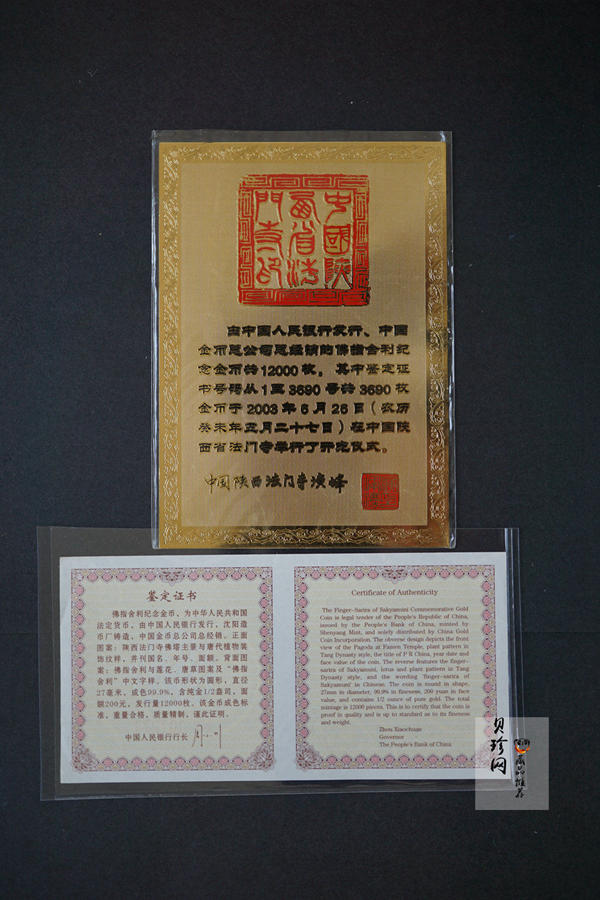 中國陝
西省法
門寺印
由中国人民银行发行、中国
金币总公司总经销的佛指舍利纪
念金币共12000枚。其中鉴定证
书号码从1至3690号共3690枚
金币于2003年6月26日（农历
癸未年五月二十七日）在中国陕
西省法门寺举行了开光仪式。
中国陕西法门寺
鉴定证书
佛指舍利纪念金币，为中华人民共和国
法定货币，由中国人民银行发行，沈阳造
币厂铸造，中国金币总公司总经销。正面
图案：陕西法门寺佛塔主景与唐代植物装
饰纹样，并刊国名、年号、面额。背面图
案：佛指舍利与莲花、唐草图案及“佛指
舍利”中文字样。该币形状为圆形，直径
27毫米，成色99.9%，含纯金1/2盎司，面
额200元，发行量12000枚。该金币成色标
准，重量合格，质量精制，谨此证明。
中国人民银行行长
Certificate of Authenticity
The Finger-Sarira of Sakyamuni Commemorative Gold
Coin is legal tender of the People's Republic of China,
issued by the People's Bank of China, minted by
Shenyang Mint, and solely distributed by China Gold
Coin Incorporation. The obverse design depicts the front
view of the Pagoda at Famen Temple, plant pattern in
Tang Dynasty style, the title of P R China, year date and
face value of the coin. The reverse features the finger-
sarira of Sakyamuni, lotus and plant pattern in Tang
Dynasty style, and the wording "finger-sarira of
Sakyamuni" in Chinese. The coin is round in shape,
27mm in diameter, 99.9% in fineness, 200 yuan in face
value, and contains 1/2 ounce of pure gold. The total
mintage is 12000 pieces. This is to certify that the coin is
proof in quality and is up to standard as to its fineness
and weight.
Zhou Xiaochuan
Governor
The People's Bank of China
贝珍网
藏品推荐